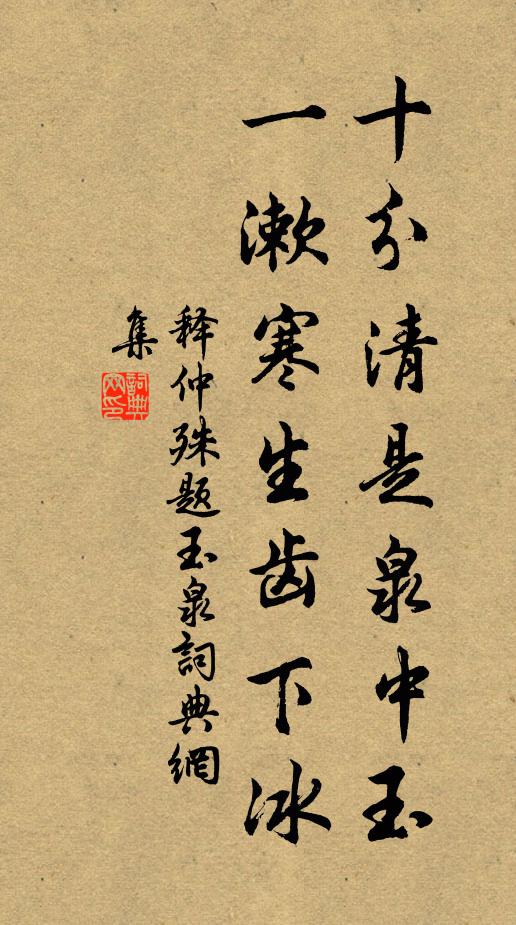 十分清是泉中玉
一漱寒生齿下冰
释仲殊题玉泉詞典網
集
詞典網印